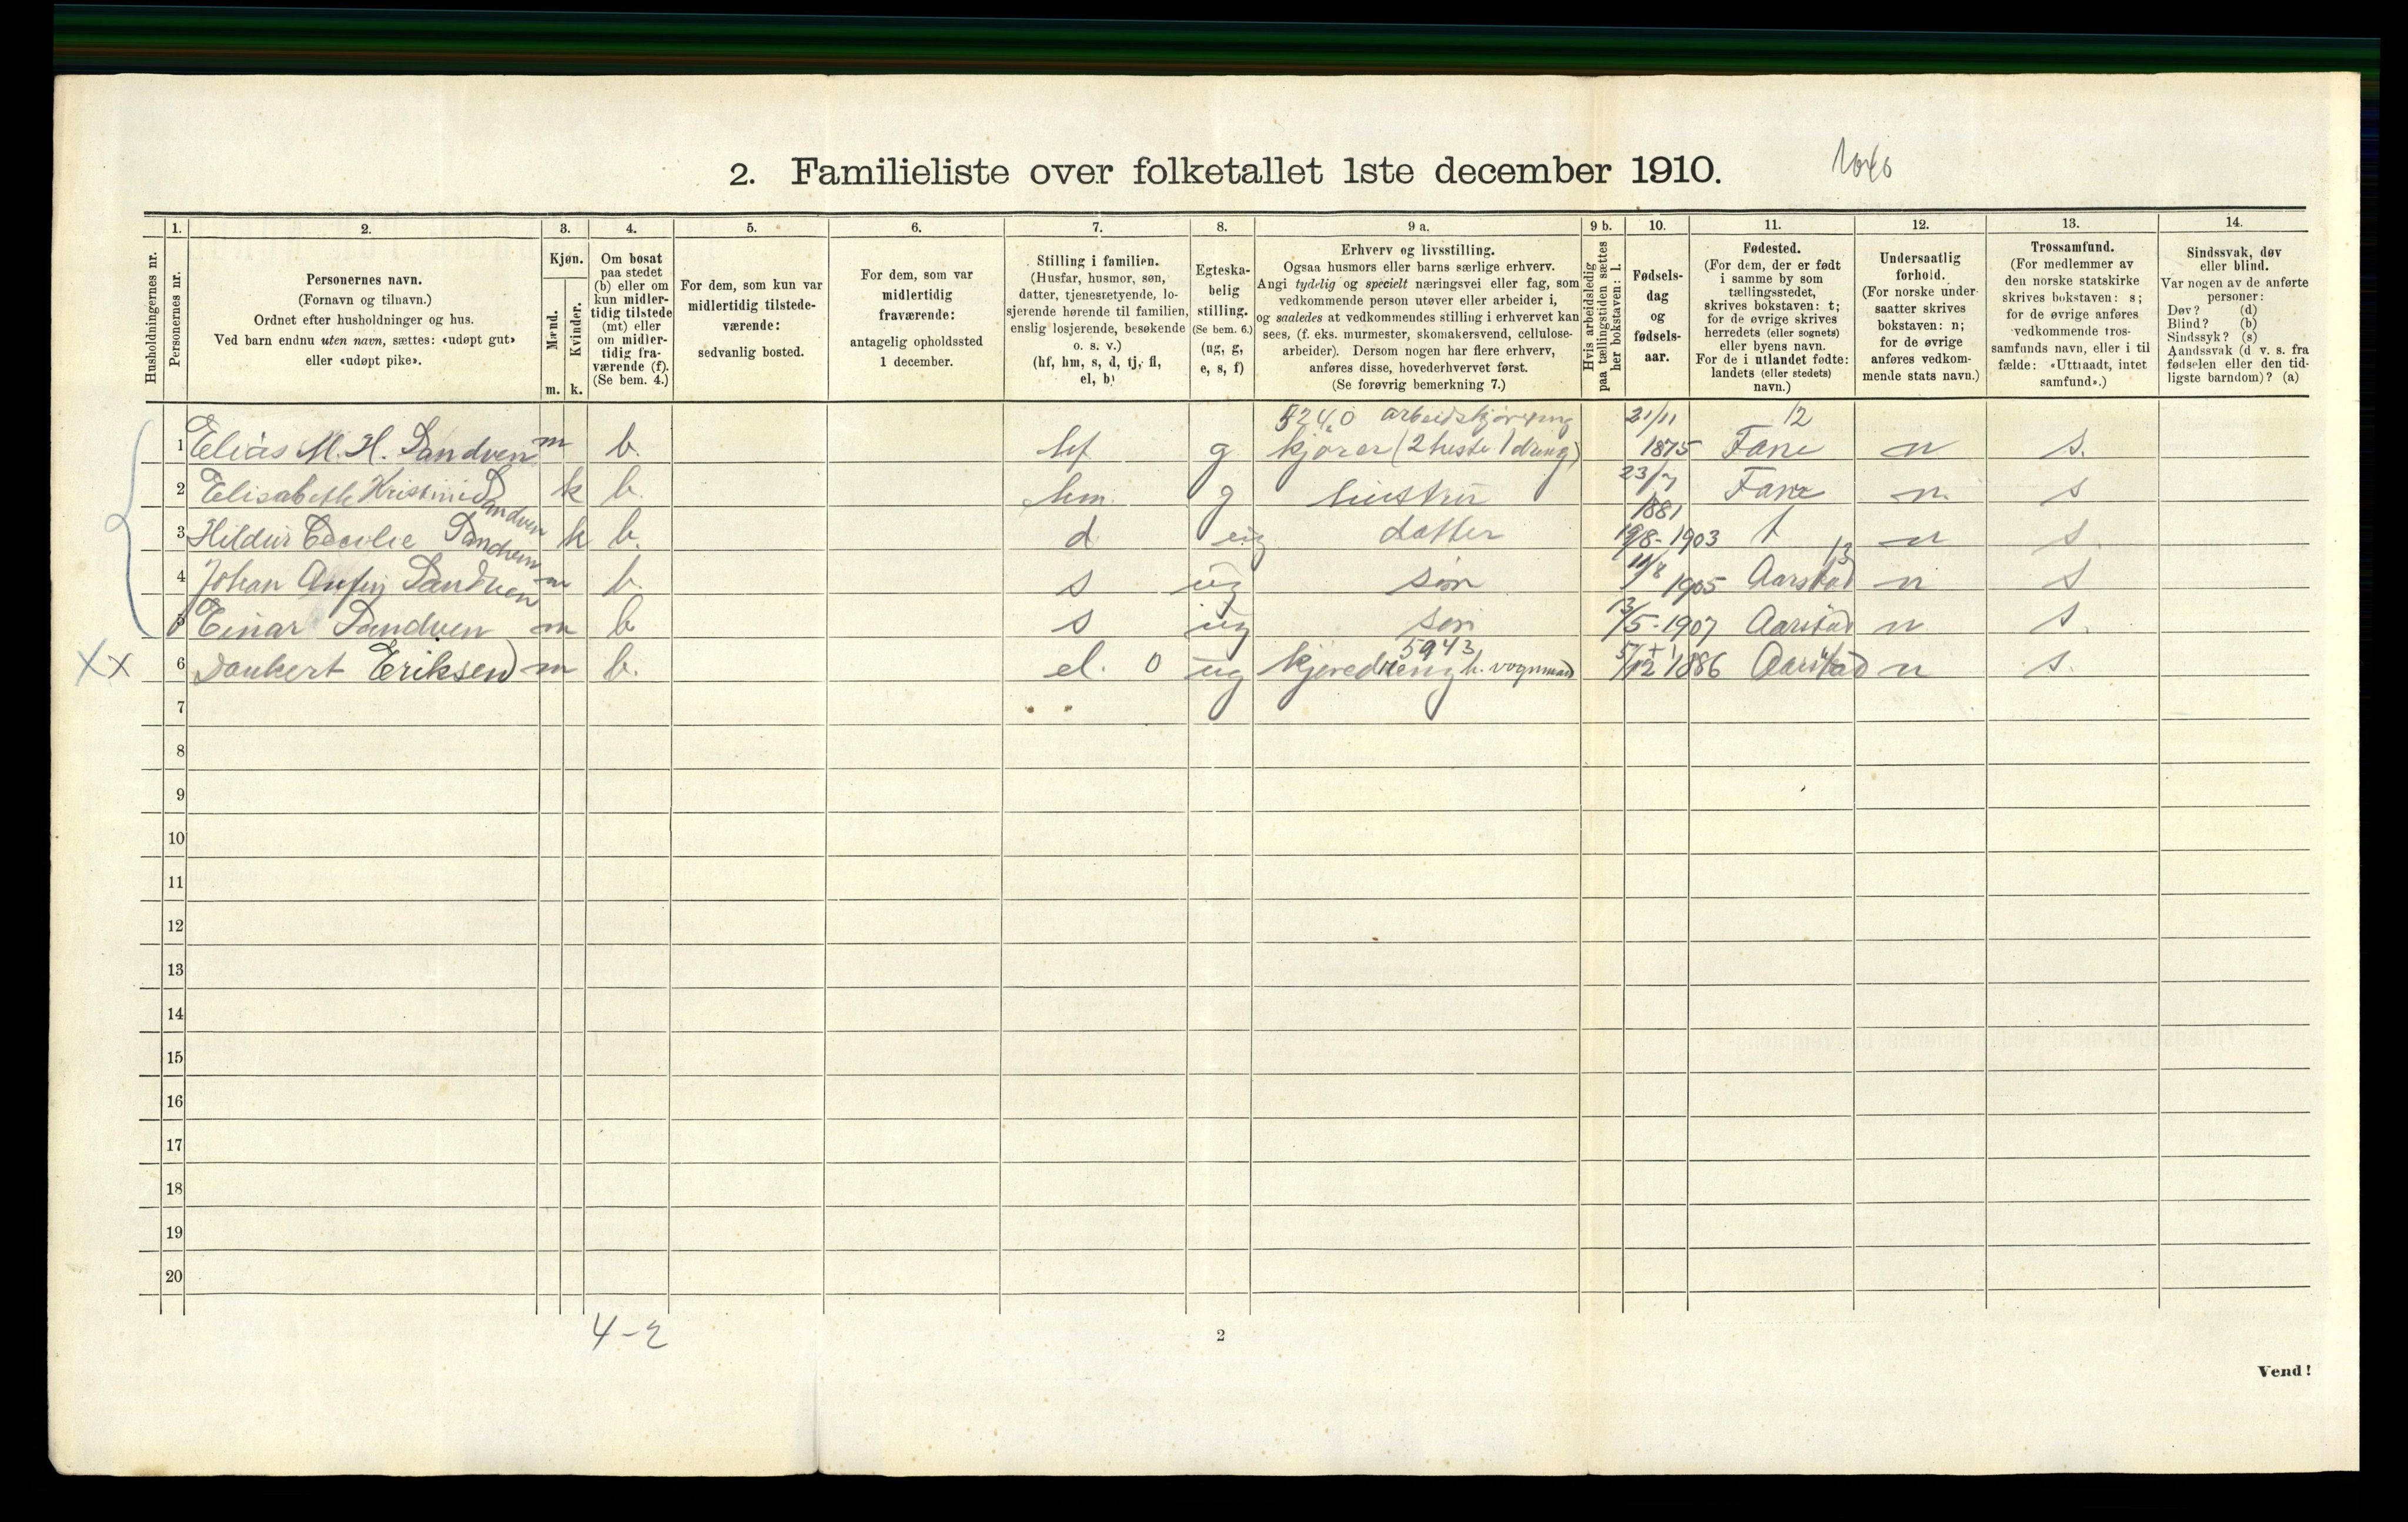 2. Familieliste over folketallet 1ste december 1910.
1. 2. 3. 4. 5. 6. 7. 8. 9 a. 9 b. 10. 11. 12. 13. 14.
Husholdningernes nr.
Personernes nr.
Personernes navn.
(Fornavn og tilnavn.)
Ordnet efter husholdninger og hus.
Ved barn endnu uten navn, sættes: «udøpt gut»
eller «udøpt pike».
Kjøn.
Mænd.
Kvinder.
m. k.
Om bosat
paa stedet
(b) eller om
kun midler-
tidig tilstede
(mt) eller
om midler-
tidig fra-
værende (f).
(Se bem. 4.)
For dem, som kun var
midlertidig tilstede-
værende:
sedvanlig bosted.
For dem, som var
midlertidig
fraværende:
antagelig opholdssted
1 december.
Stilling i familien.
(Husfar, husmor, søn,
datter, tjenestetyende, lo-
sjerende hørende til familien,
enslig losjerende, besøkende
o. s. v.)
(hf, hm, s, d, tj, fl,
el, b)
Egteska-
belig
stilling.
(Se bem. 6.)
(ug, g,
e, s, f)
Erhverv og livsstilling.
Ogsaa husmors eller barns særlige erhverv.
Angi tydelig og specielt næringsvei eller fag, som
vedkommende person utøver eller arbeider i,
og saaledes at vedkommendes stilling i erhvervet kan
sees, (f. eks. murmester, skomakersvend, cellulose-
arbeider). Dersom nogen har flere erhverv,
anføres disse, hovederhvervet først.
(Se forøvrig bemerkning 7.)
Hvis arbeidsledig
paa tællingstiden sættes
her bokstaven: l.
Fødsels-
dag
og
fødsels-
aar.
Fødested.
(For dem, der er født
i samme by som
tællingsstedet,
skrives bokstaven: t;
for de øvrige skrives
herredets (eller sognets)
eller byens navn.
For de i utlandet fødte:
landets (eller stedets)
navn.)
Undersaatlig
forhold.
(For norske under-
saatter skrives
bokstaven: n;
for de øvrige
anføres vedkom-
mende stats navn.)
Trossamfund.
(For medlemmer av
den norske statskirke
skrives bokstaven: s;
for de øvrige anføres
vedkommende tros-
samfunds navn, eller i til
fælde: «Uttraadt, intet
samfund».)
Sindssvak, døv
eller blind.
Var nogen av de anførte
personer:
Døv? (d)
Blind? (b)
Sindssyk? (s)
Aandssvak (d v. s. fra
fødselen eller den tid-
ligste barndom)? (a)
arbeidskjøring 21/11 12
1 Elias M. H. Sandven m b. hf g kjører (2 heste 1 dreng) 1875 Fane n s.
2 Elisabeth Kristine Sandven k b. hm. g hustru 23/7 1881 Fane n. s
3 Hildur Cecilie Sandven k b. d ug datter 19/8-1903 t n s.
4 Johan Sandven m b. s ug søn 1905 Aarstad 13 n s
5 Einar Sandven m b s ug søn 13/5-1907 Aarstad n s.
5943
XX 6 Eriksen m b. el. 0 ug kjøredreng h. vognmand 5/12 1886 Aarstad n s.
7
8
9
10
11
12
13
14
15
16
17
18
19
20
4-2
2
Vend!